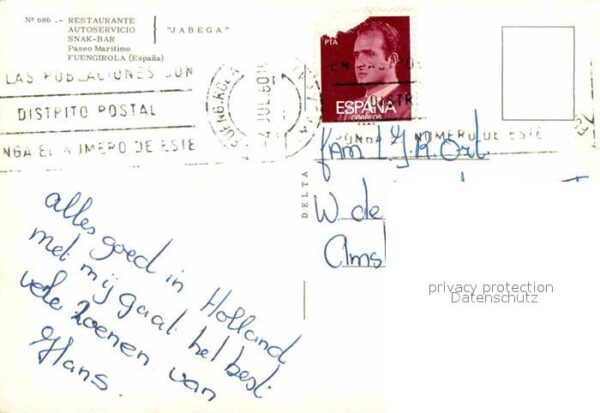 Nº 686 .- RESTAURANTE
AUTOSERVICIO
SNAK-BAR
Paseo Marítimo
FUENGIROLA (España)
"JABEGA"
LAS POBLACIONES CON
DISTRITO POSTAL
NGA EL NUMERO DE ESTE
4 JUL 80
PTA
ESPAÑA
CORREOS
PONGA NUMERO DE ESTE
DELTA
fam J.R. Ort
W de
Ams
alles goed in Holland
met mij gaat het best
vele zoenen van
Hans.
privacy protection
Datenschutz